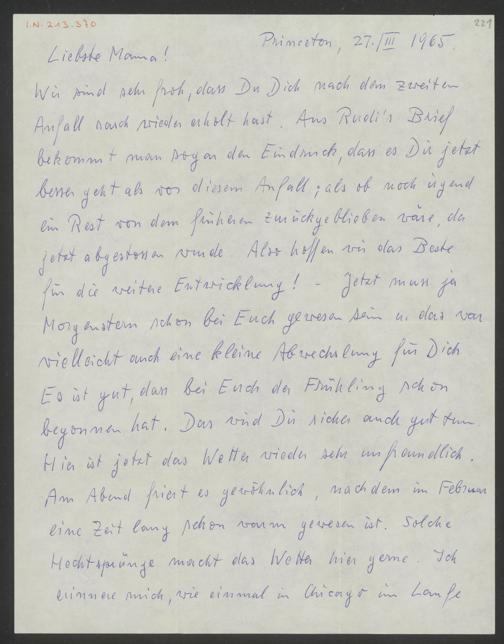 I.N. 213.370
221
Princeton, 27./III 1965.
Liebste Mama!
Wir sind sehr froh, dass Du Dich nach dem zweiten
Anfall rasch wieder erholt hast. Aus Rudi's Brief
bekommt man sogar den Eindruck, dass es Dir jetzt
besser geht als vor diesem Anfall; als ob noch irgend
ein Rest von dem früheren zurückgeblieben wäre, der
jetzt abgestossen wurde. Also hoffen wir das Beste
für die weitere Entwicklung! – Jetzt muss ja
Morgenstern schon bei Euch gewesen sein u. das war
vielleicht auch eine kleine Abwechslung für Dich
Es ist gut, dass bei Euch der Frühling schon
begonnen hat. Das wird Dir sicher auch gut tun.
Hier ist jetzt das Wetter wieder sehr unfreundlich.
Am Abend friert es gewöhnlich, nachdem im Februar
eine Zeit lang schon warm gewesen ist. Solche
Hochtsprünge macht das Wetter hier gerne. Ich
erinnere mich, wie einmal in Chicago im Laufe